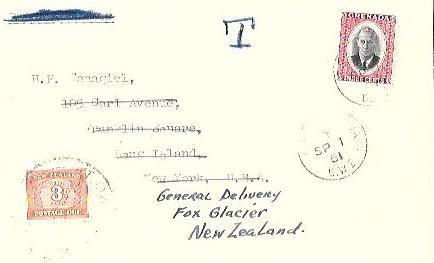 T
GRENADA
THREE CENTS
H.F.
105 Carl Avenue,
Franklin Square,
Long Island,
New York, U.S.A.
SP 1
61
B.W.I.
General Delivery
Fox Glacier
New Zealand.
NEW ZEALAND
3D
POSTAGE DUE